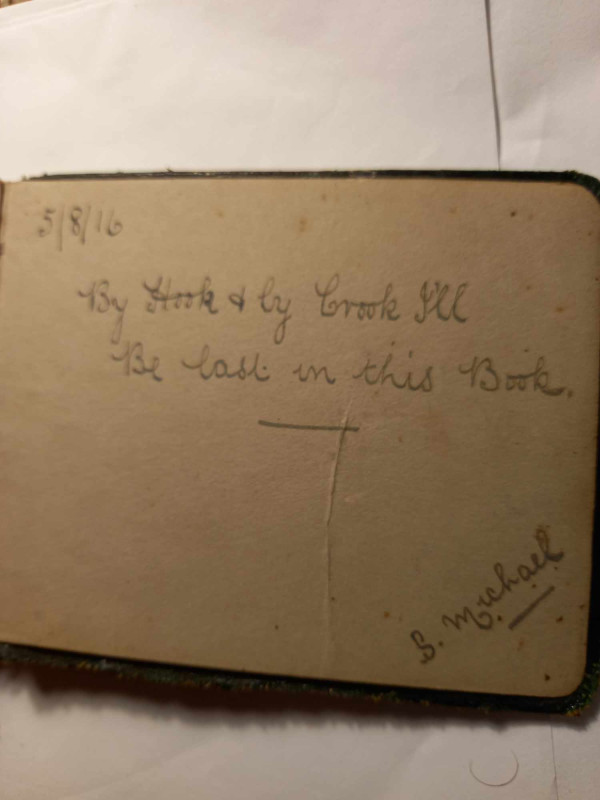 5/8/16
By Hook & by Crook I'll
Be last in this Book.
S. Michael